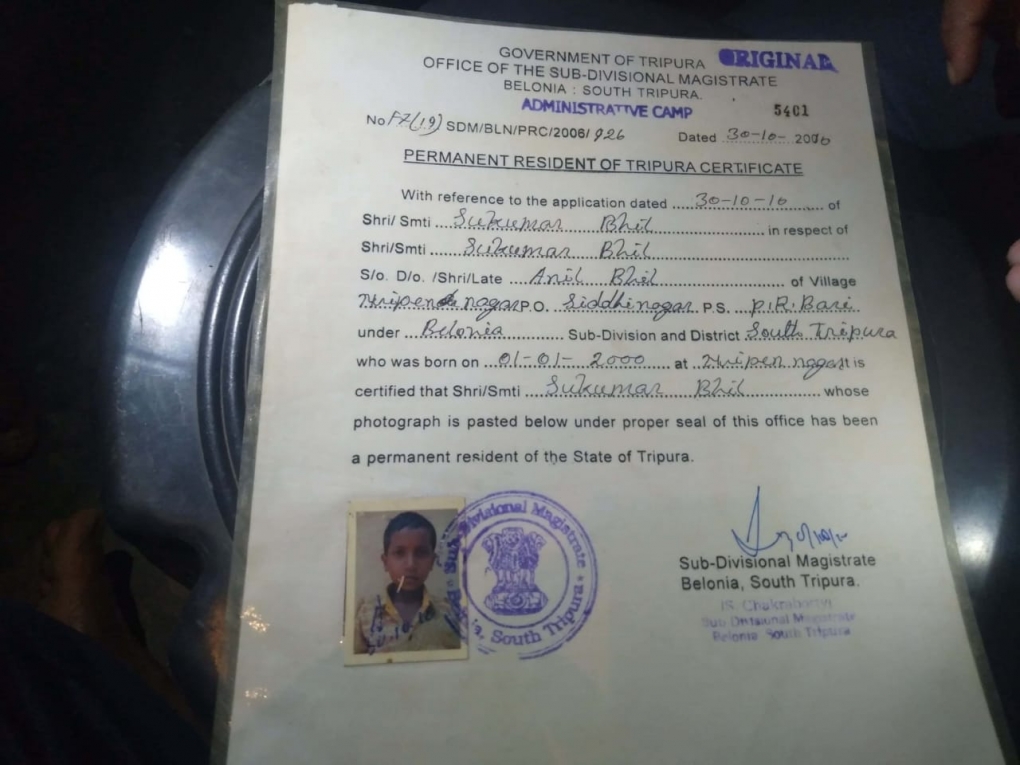 GOVERNMENT OF TRIPURA ORIGINAL
OFFICE OF THE SUB-DIVISIONAL MAGISTRATE
BELONIA : SOUTH TRIPURA.
ADMINISTRATIVE CAMP 5401
No F7(19) SDM/BLN/PRC/2006/926 Dated 30-10-2010
PERMANENT RESIDENT OF TRIPURA CERTIFICATE
With reference to the application dated 30-10-10 of
Shri/ Smti Sukumar Bhil in respect of
Shri/Smti Sukumar Bhil
S/o. D/o. /Shri/Late Anil Bhil of Village
Nripen nagar P.O. Siddhinagar P.S. P.R. Bari
under Belonia Sub-Division and District South Tripura
who was born on 01-01-2000 at Nripen nagar It is
certified that Shri/Smti Sukumar Bhil whose
photograph is pasted below under proper seal of this office has been
a permanent resident of the State of Tripura.
Sub-Divisional Magistrate
South Tripura
Sub-Divisional Magistrate
Belonia, South Tripura.
(S. Chakraborty)
Sub Divisional Magistrate
Belonia South Tripura